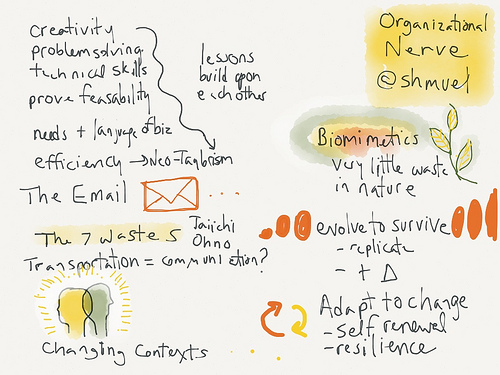 creativity
problemsolving
technical skills
prove feasability
needs + language of biz
efficiency → Neo-Taylorism
lessons
build upon
each other
The Email
The 7 wastes
Taiichi
Ohno
Transportation = communication?
Changing Contexts
Organizational
Nerve
@shmuel
Biomimetics
very little waste
in nature
evolve to survive
- replicate
- + Δ
Adapt to change
- self renewal
- resilience